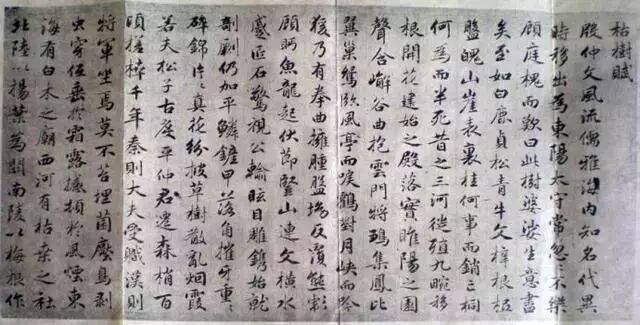 枯樹賦
殷仲文風流儒雅海內知名代異
時移出為東陽太守常忽忽不樂
顧庭槐而歎曰此樹婆娑生意盡
矣至如白鹿貞松青牛文梓根柢
盤魄山崖表裏桂何事而銷亡桐
何為而半死昔之三河徙殖九畹移
根開花建始之殿落實睢陽之園
聲含嶰谷曲抱雲門將鶵集鳳比
翼巢鴛臨風亭而唳鶴對月峽而吟
猨乃有拳曲擁腫盤坳反覆熊彪
顧眄魚龍起伏節豎山連文橫水
蹙匠石驚視公輸眩目雕鐫始就
剞劂仍加平鱗鏟甲落角摧牙重重
碎錦片片真花紛披草樹散亂烟霞
若夫松子古度平仲君遷森梢百
頃槎枿千年秦則大夫受職漢則
將軍坐焉莫不苔埋菌壓鳥剝
虫穿低垂於霜露撼頓於風煙東
海有白木之廟西河有枯桑之社
北陸以楊葉為關南陵以梅根作